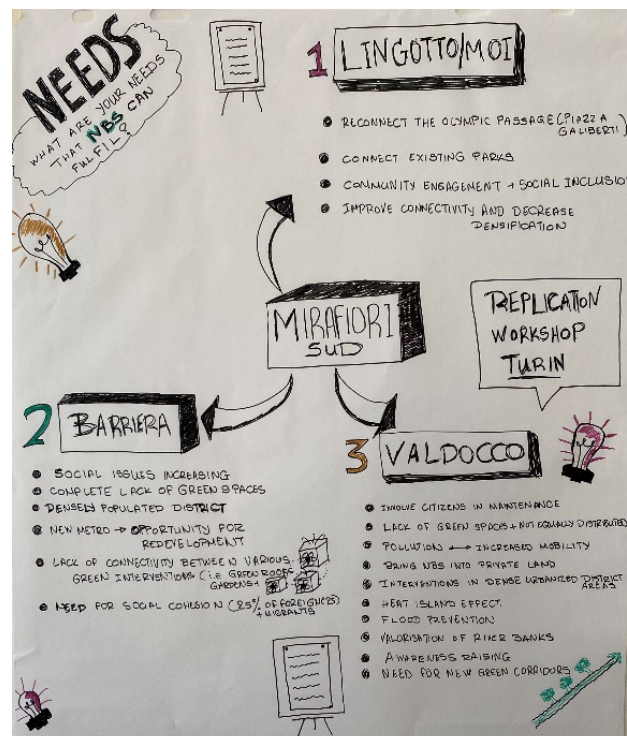 NEEDS
WHAT ARE YOUR NEEDS
THAT NBS CAN
FULFIL?
1 LINGOTTO/MOI
RECONNECT THE OLYMPIC PASSAGE (PIAZZA
GALIBERTI)
CONNECT EXISTING PARKS
COMMUNITY ENGAGEMENT + SOCIAL INCLUSION
IMPROVE CONNECTIVITY AND DECREASE
DENSIFICATION
MIRAFIORI
SUD
REPLICATION
WORKSHOP
TURIN
2 BARRIERA
SOCIAL ISSUES INCREASING
COMPLETE LACK OF GREEN SPACES
DENSELY POPULATED DISTRICT
NEW METRO → OPPORTUNITY FOR
REDEVELOPMENT
LACK OF CONNECTIVITY BETWEEN VARIOUS
GREEN INTERVENTIONS (i.e GREEN ROOFS
GARDENS
NEED FOR SOCIAL COHESION (25% OF FOREIGNERS)
+ MIGRANTS
3 VALDOCCO
INVOLVE CITIZENS IN MAINTENANCE
LACK OF GREEN SPACES + NOT EQUALLY DISTRIBUTED
POLLUTION ↔ INCREASED MOBILITY
BRING NBS INTO PRIVATE LAND
INTERVENTIONS IN DENSE URBANIZED DISTRICT
AREAS
HEAT ISLAND EFFECT
FLOOD PREVENTION
VALORISATION OF RIVER BANKS
AWARENESS RAISING
NEED FOR NEW GREEN CORRIDORS